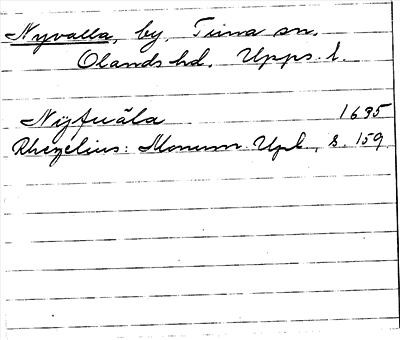 Nyvalla, by, Tierna sn.
Olands hd, Upps. l.
Nyfwäla 1635
Rhezelius: Monum. Upl., s. 159